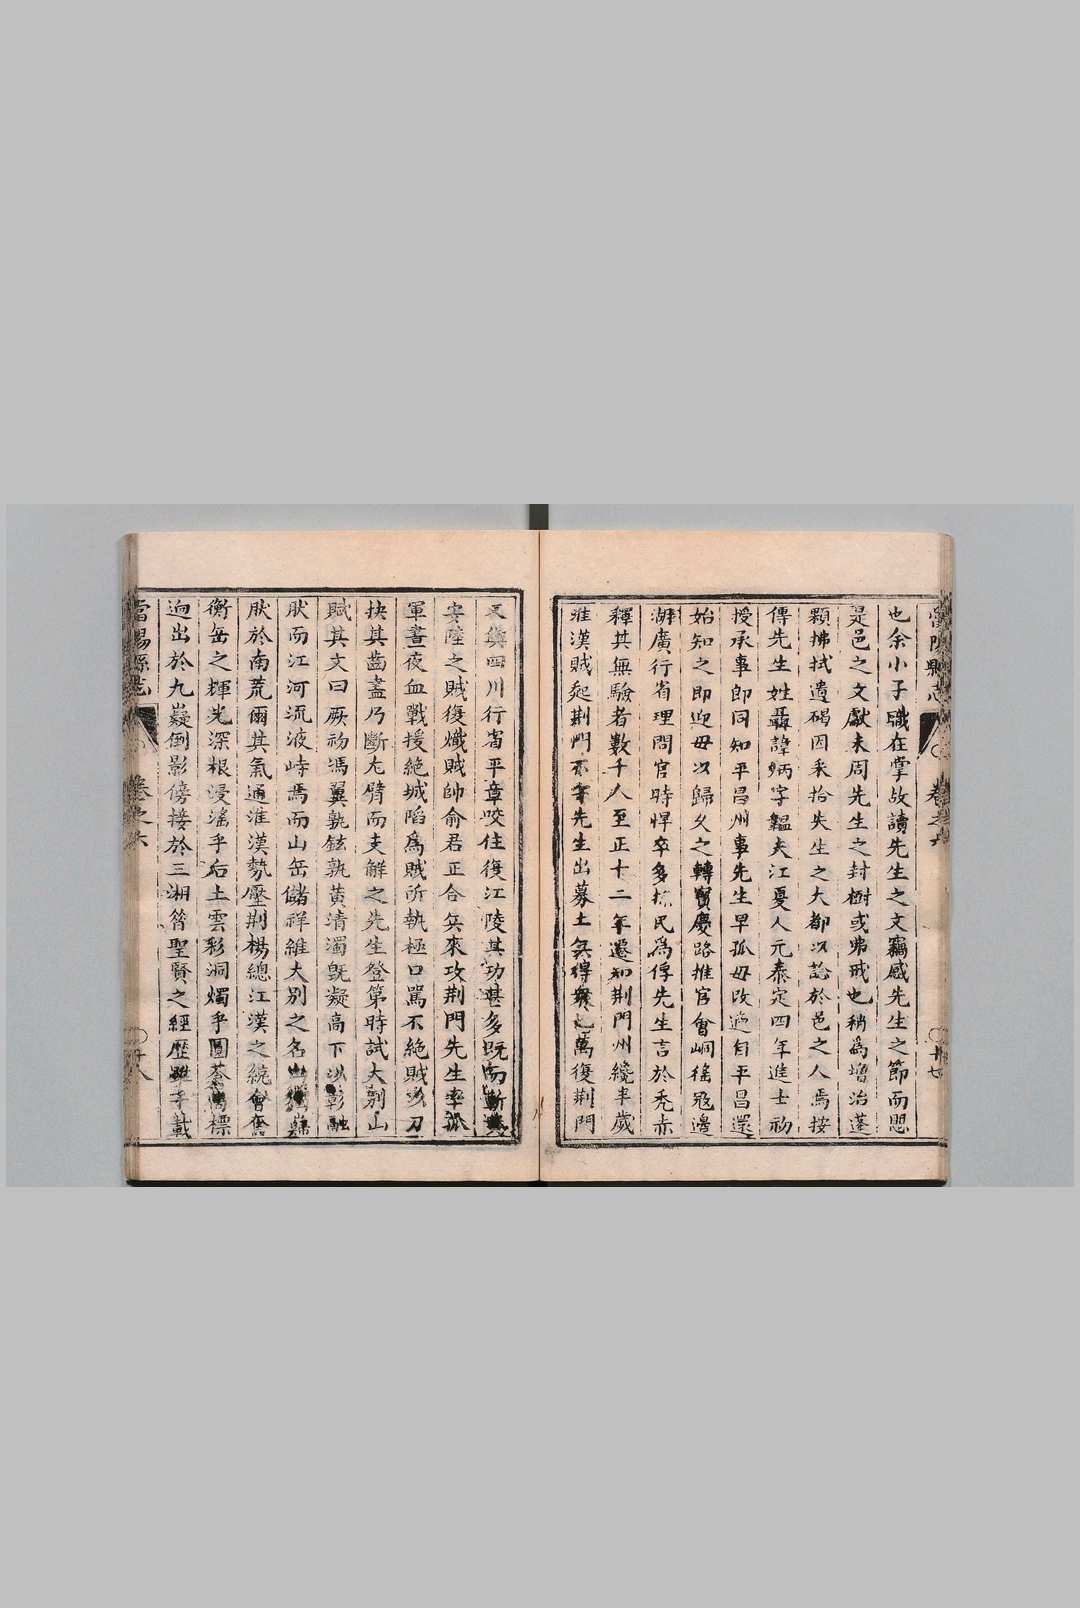 當陽縣志 卷之六 廿七
也余小子職在掌故讀先生之文竊感先生之節而思
是邑之文獻未周先生之封樹或弗戒也稍為增治蓬
顆拂拭遺碣因采拾先生之大都以諗於邑之人焉按
傳先生姓聶諱炳字韞夫江夏人元泰定四年進士初
授承事郎同知平昌州事先生早孤母改適自平昌還
始知之即迎母以歸久之轉寶慶路推官會峒徭冦邊
湖廣行省理問官時悍卒多掠民為俘先生言於禿赤
釋其無驗者數千人至正十二年遷知荆門州纔半歲
淮漢賊起荆門不守先生出募土兵得衆七萬復荆門
又與四川行省平章咬住復江陵其功甚多既而
安陸之賊復熾賊帥俞君正合兵來攻荆門先生率孤
軍晝夜血戰援絶城陷為賊所執極口罵不絶賊以刀
抉其齒盡乃斷左臂而支解之先生登第時試大别山
賦其文曰厥初馮翼孰鉉孰黄清濁既凝高下以彰融
肰而江河流液峙焉而山岳儲祥維大别之名山
肰於南荒爾其氣通淮漢勢壓荆楊總江漢之統會奮
衡岳之輝光深根浸滛乎后土雲彩洞燭乎圓蒼標
逈出於九嶷倒影傍接於三湘昝聖賢之經歴雖千載
當陽縣志 卷之六 廿八